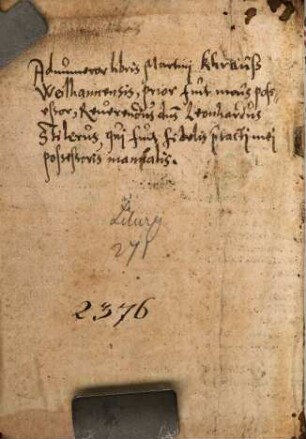 Adnumeror libris Martini Khrauß
Welhamensis, prior fuit meus pos-
sessor, Reuerendus dns Leonhardus
qui fuit fidelis
possessoris manualis.
Liturg
271
2376